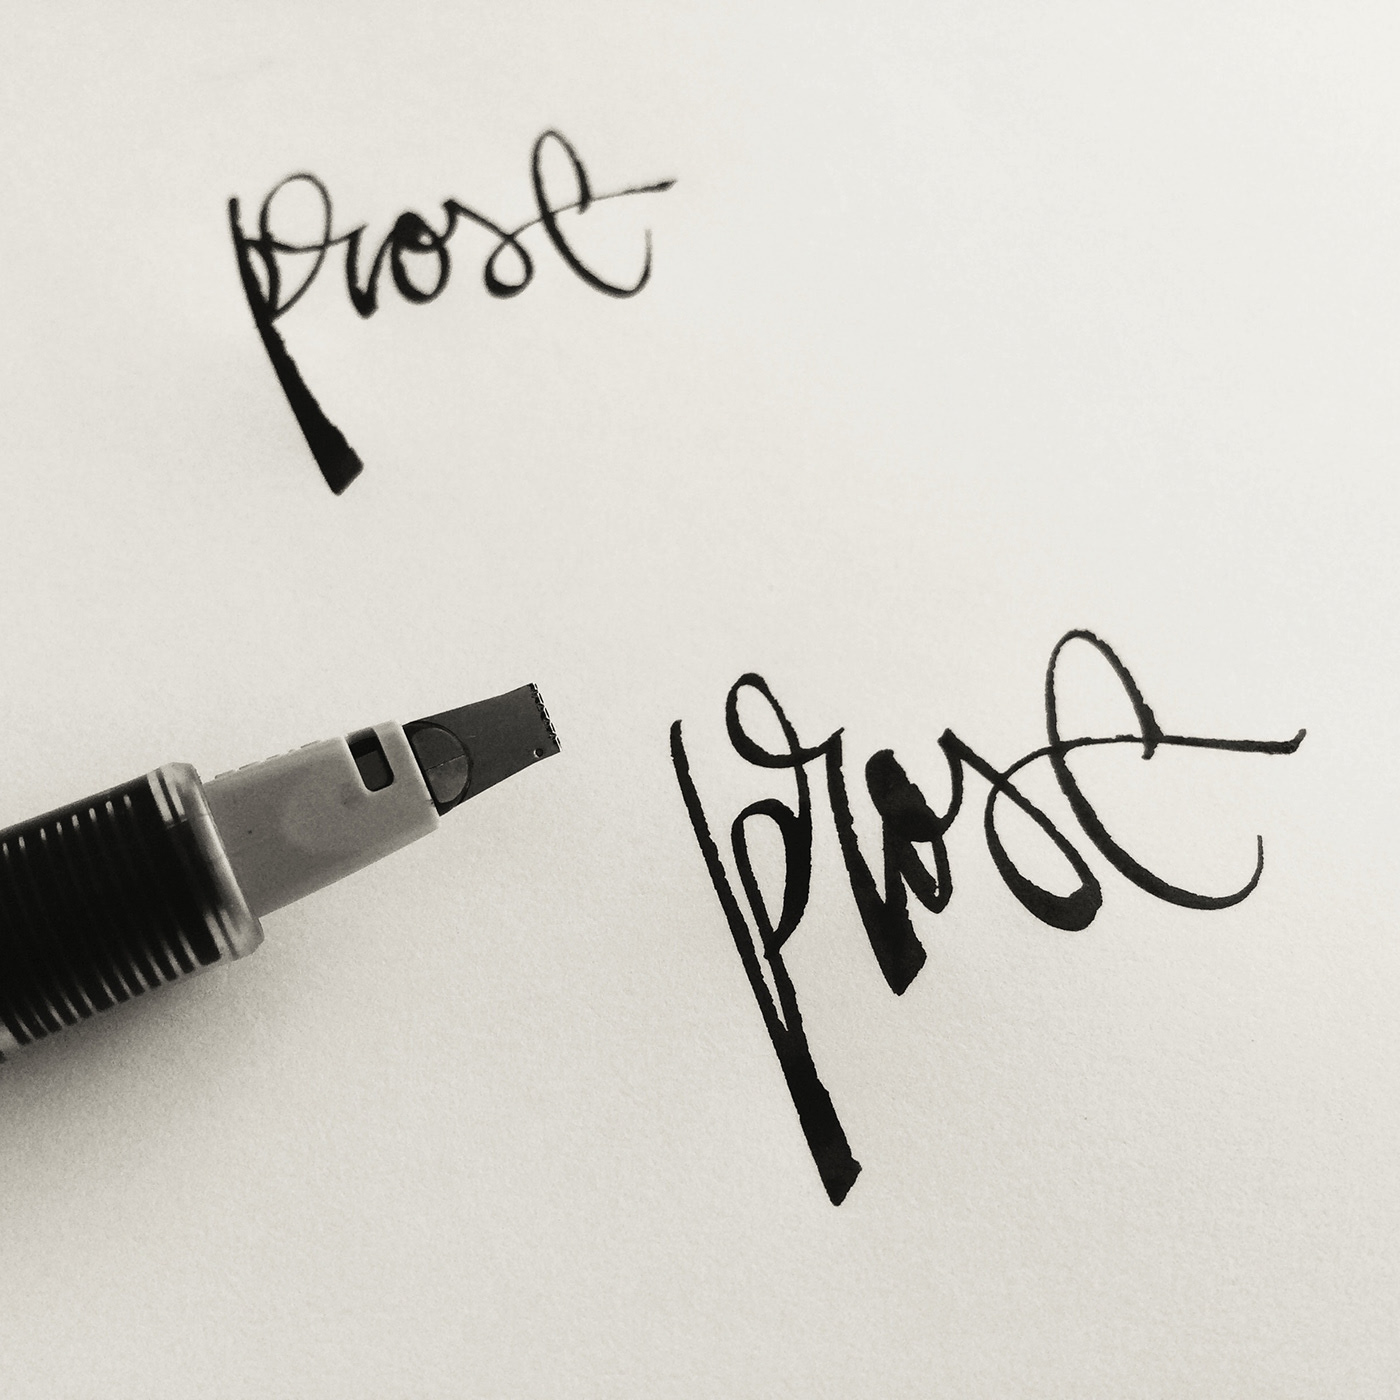 prost
prost